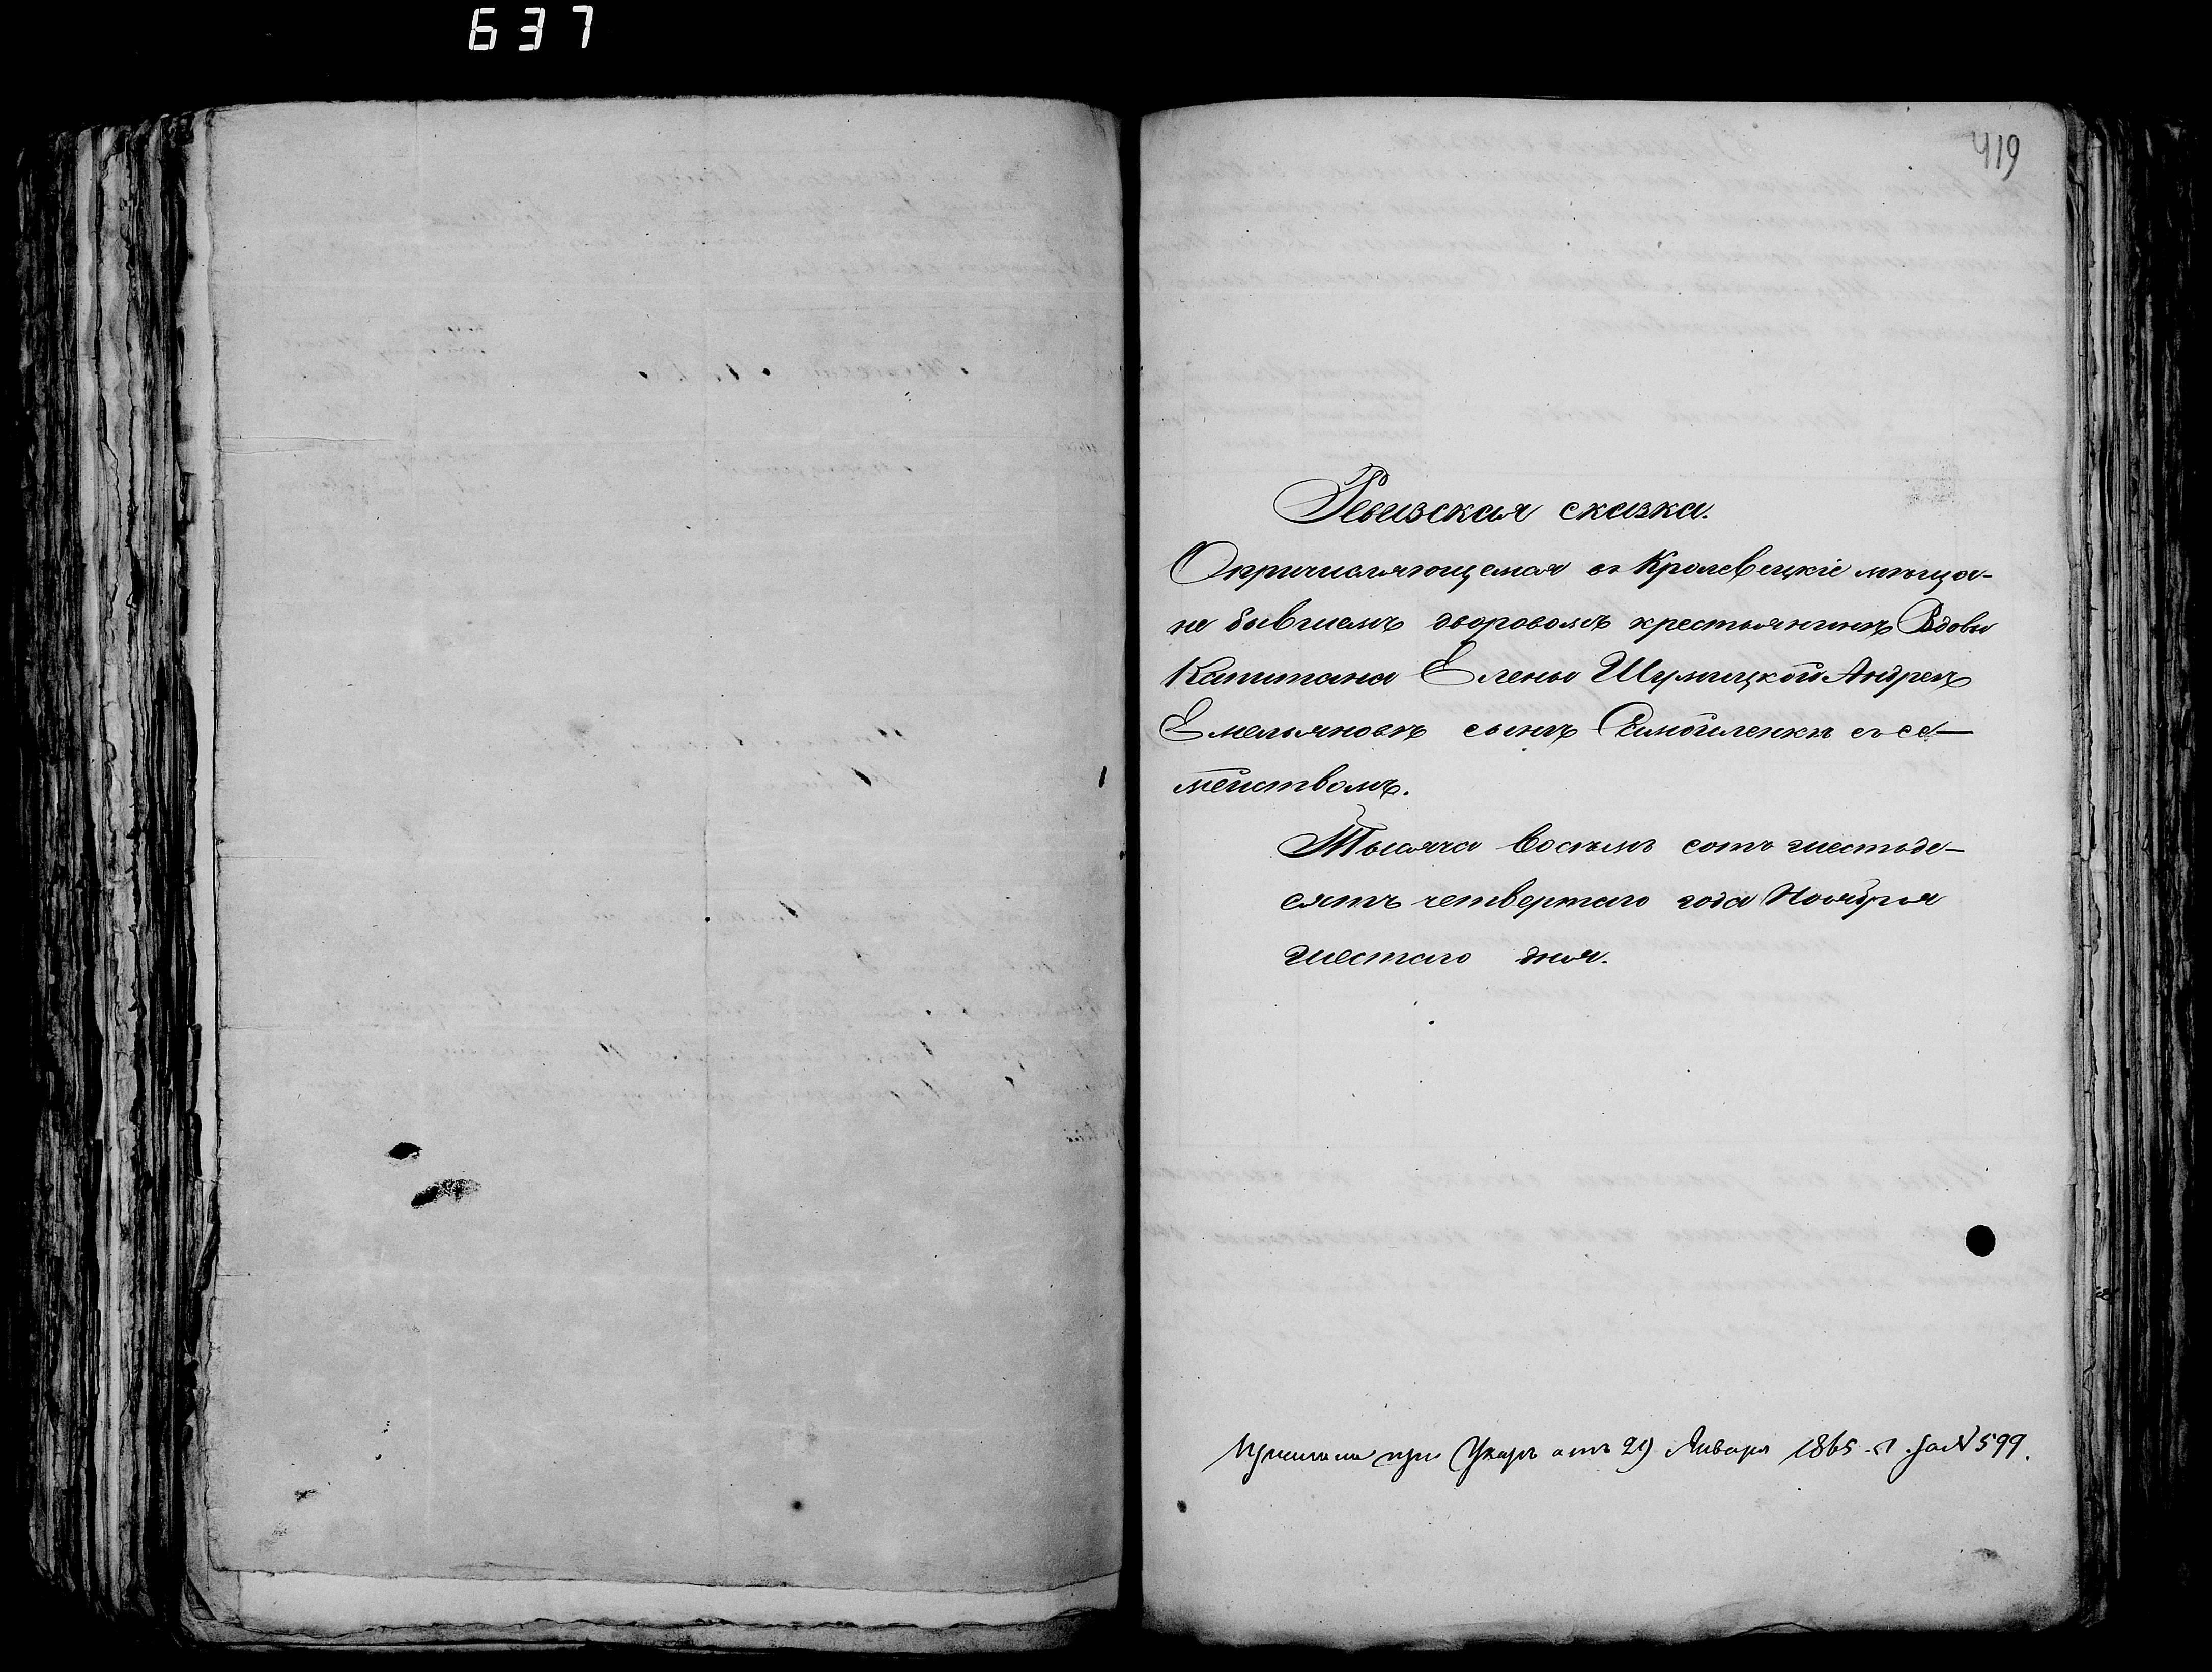 637
419
Ревизская сказка.
О причисляющемся въ Кролевецкіе мѣща-
не бывшемъ дворовомъ крестьянинѣ Вдовы
Капитана Елены Шумицкой Андреѣ
Емельяновѣ сынѣ Самойленкѣ съ се-
мействомъ.
Тысяча восемь сотъ шестьде-
сятъ четвертаго года Ноября
шестаго дня.
при Указѣ отъ 29 Января 1865 г. за № 599.